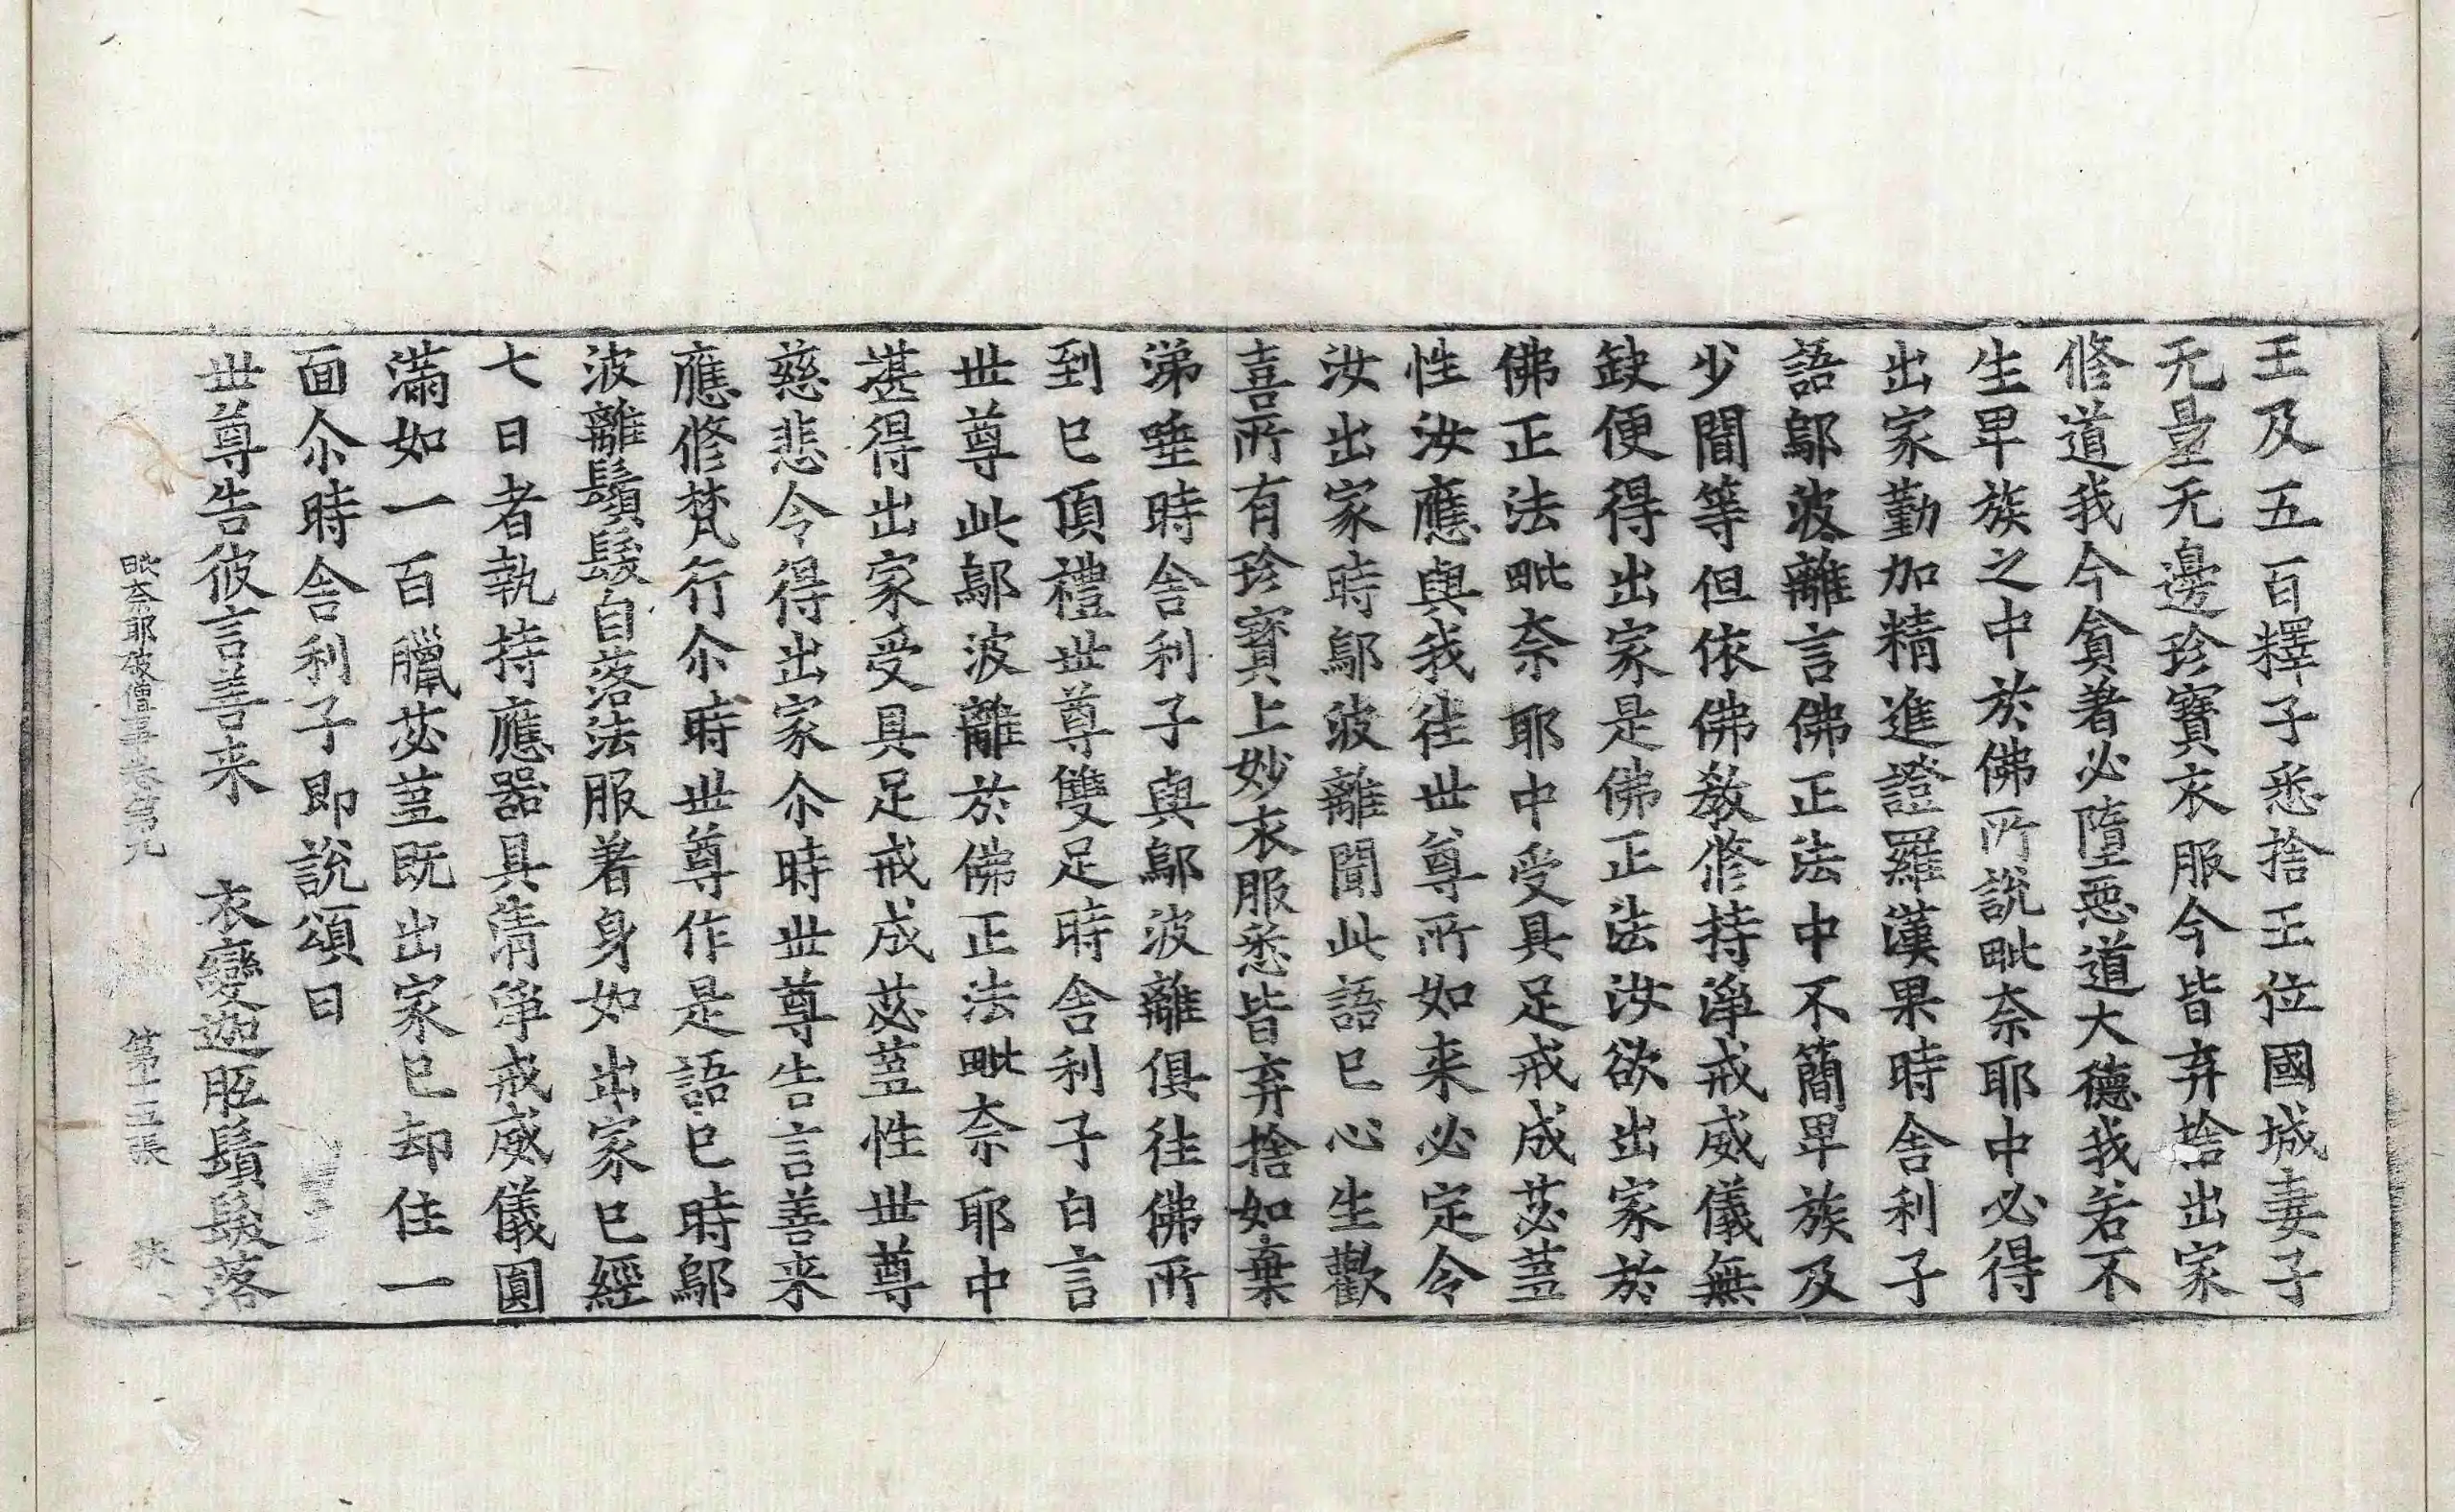 王及五百釋子悉捨王位國城妻子
无量无邊珍寶衣服今皆弃捨出家
修道我今貪著必墮惡道大德我若不
生卑族之中於佛所說毗奈耶中必得
出家勤加精進證羅漢果時舍利子
語鄔波離言佛正法中不簡卑族及
少聞等但依佛教修持淨戒威儀無
缺便得出家是佛正法汝欲出家於
佛正法毗奈耶中受具足戒成苾蒭
性汝應與我往世尊所如来必定令
汝出家時鄔波離聞此語已心生歡
喜所有珍寶上妙衣服悉皆弃捨如棄
涕唾時舍利子與鄔波離俱往佛所
到已頂禮世尊雙足時舍利子白言
世尊此鄔波離於佛正法毗奈耶中
堪得出家受具足戒成苾蒭性世尊
慈悲令得出家尒時世尊告言善来
應修梵行尒時世尊作是語已時鄔
波離鬚髮自落法服著身如出家已經
七日者執持應器具清淨戒威儀圓
滿如一百臘苾蒭既出家已却住一
面尒時舍利子即說頌曰
世尊告彼言善来　衣變迦胝鬚髮落
毗奈耶破僧事卷第九　第十五張　狹